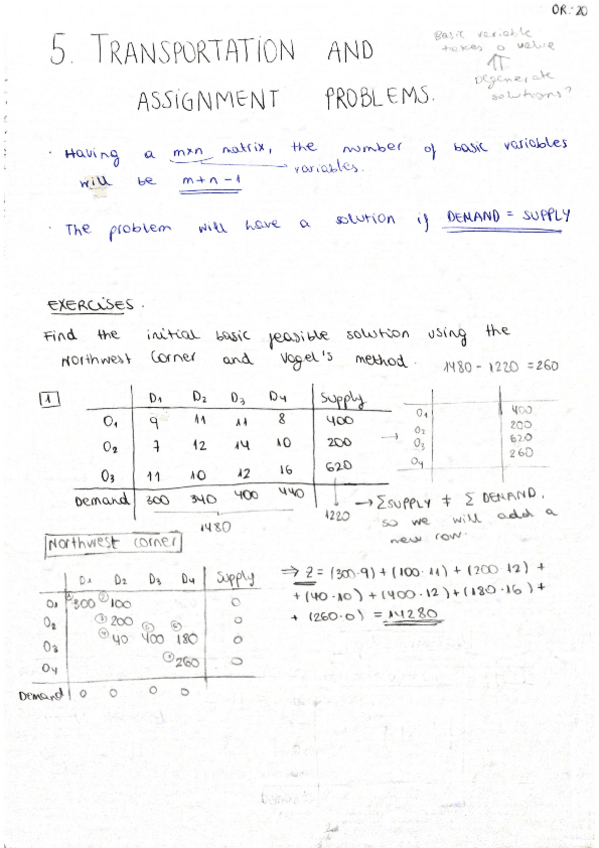 OR: 20
5. TRANSPORTATION AND
ASSIGNMENT PROBLEMS.
Basic variable
takes 0 value
⇑
Degenerate
solutions?
· Having a mxn matrix, the number of basic variables
variables.
will be m+n-1
· The problem will have a solution if DEMAND = SUPPLY
EXERCISES.
Find the initial basic feasible solution using the
Northwest Corner and Vogel's method. 1480 - 1220 = 260
1
D1 D2 D3 D4 Supply
O1 9 11 11 8 400
O2 7 12 14 10 200
O3 11 10 12 16 620
Demand 300 340 400 440
1480
1220
→
O1 400
O2 200
O3 620
O4 260
→ ΣSUPPLY ≠ Σ DEMAND,
so we will add a
new row.
Northwest corner
D1 D2 D3 D4 Supply
O1 ①300 ②100 0
O2 ③200 0
O3 ④40 ⑤400 ⑥180 0
O4 ⑦260 0
Demand 0 0 0 0
⇒ Z = (300·9) + (100·11) + (200·12) +
+ (40·10) + (400·12) + (180·16) +
+ (260·0) = 14280